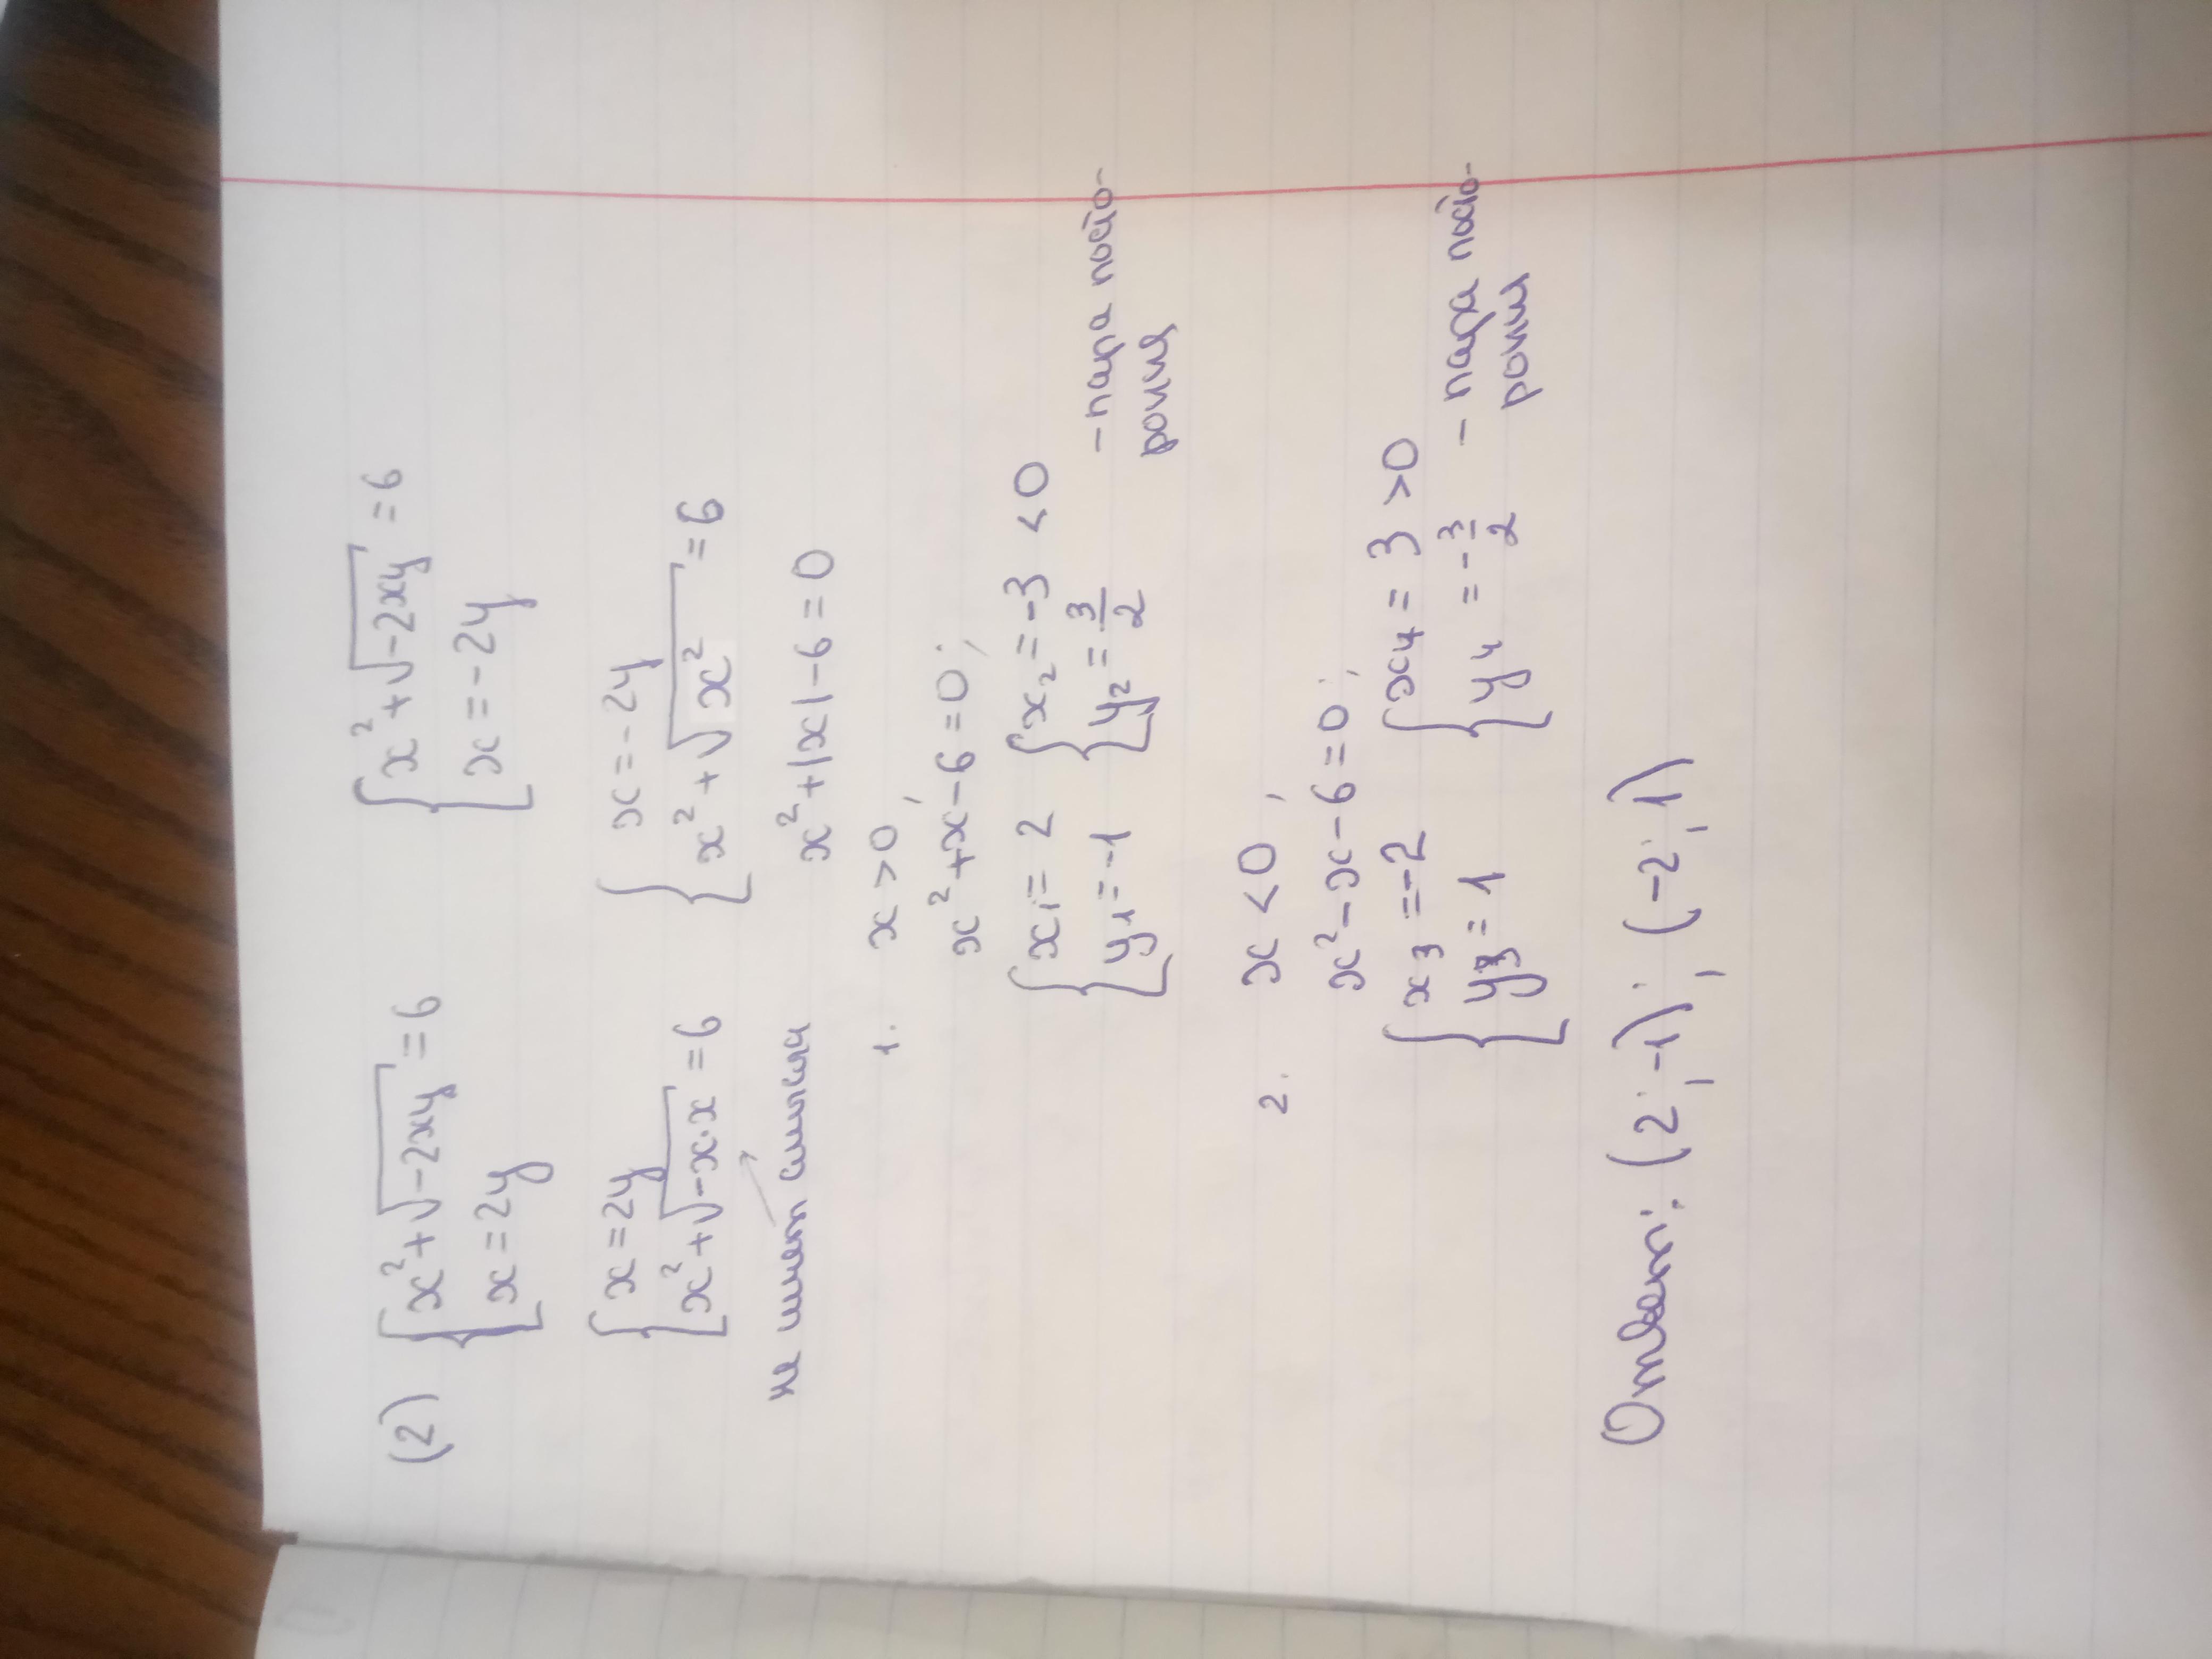 (2) { x² + √-2xy = 6   { x² + √-2xy = 6
x = 2y   x = -2y
{ x = 2y   { x = -2y
x² + √-x·x = 6   x² + √x² = 6
не имеет смысла   x² + |x| - 6 = 0
1. x > 0;
x² + x - 6 = 0;
{ x₁ = 2   { x₂ = -3 < 0
y₁ = -1   y₂ = 3/2 - пара посто-
ронняя
2. x < 0;
x² - x - 6 = 0;
{ x₃ = -2   { x₄ = 3 > 0
y₃ = 1   y₄ = -3/2 - пара посто-
ронняя
Ответ: (2; -1); (-2; 1)